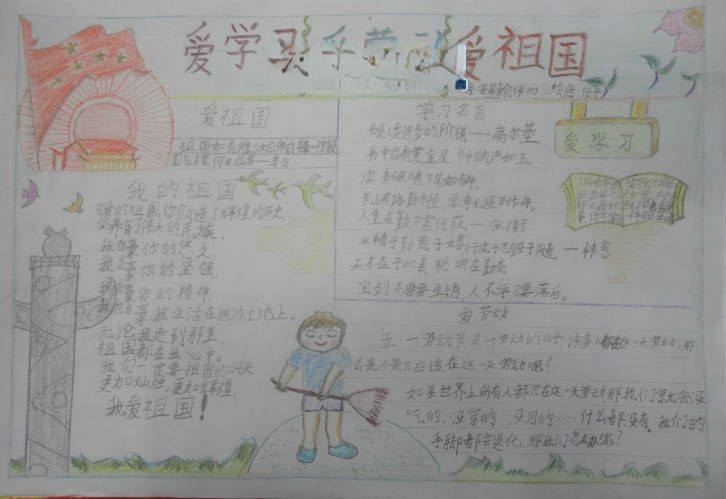 爱学习 爱劳动 爱祖国
爱祖国
我的祖国
可爱的祖国,你创造了辉煌的历史,
你养育了伟大的民族,
我自豪你的悠久
我自豪你的坚强,
我自豪你的精神,
我自豪我生活在这片土地上。
无论我走到那里,
祖国都在我心中。
我们一定要祖国的明天
更加灿烂,更加辉煌,
我爱祖国!
学习名言
书是人类进步的阶梯——高尔基
书中自有黄金屋 书中自有颜如玉
读书破万卷下笔如有神
书山有路勤为径 学海无涯苦作舟
人生在勤不索何获——张衡
业精于勤荒于嬉行成于思毁于随。——韩愈
天才在于积累 聪明在勤奋
宝剑不磨要生锈 人不学要落后。
爱学习
爱劳动
五一劳动节是劳动的日子,许多人都在这一天劳动,那
么是不是只应该在这一天劳动呢?
如果世界上所有人都只在这一天劳动那我们京尤会没
吃的,没穿的,没用的……什么都没有,我们的
手脚都会退化,那我们怎么办呢?